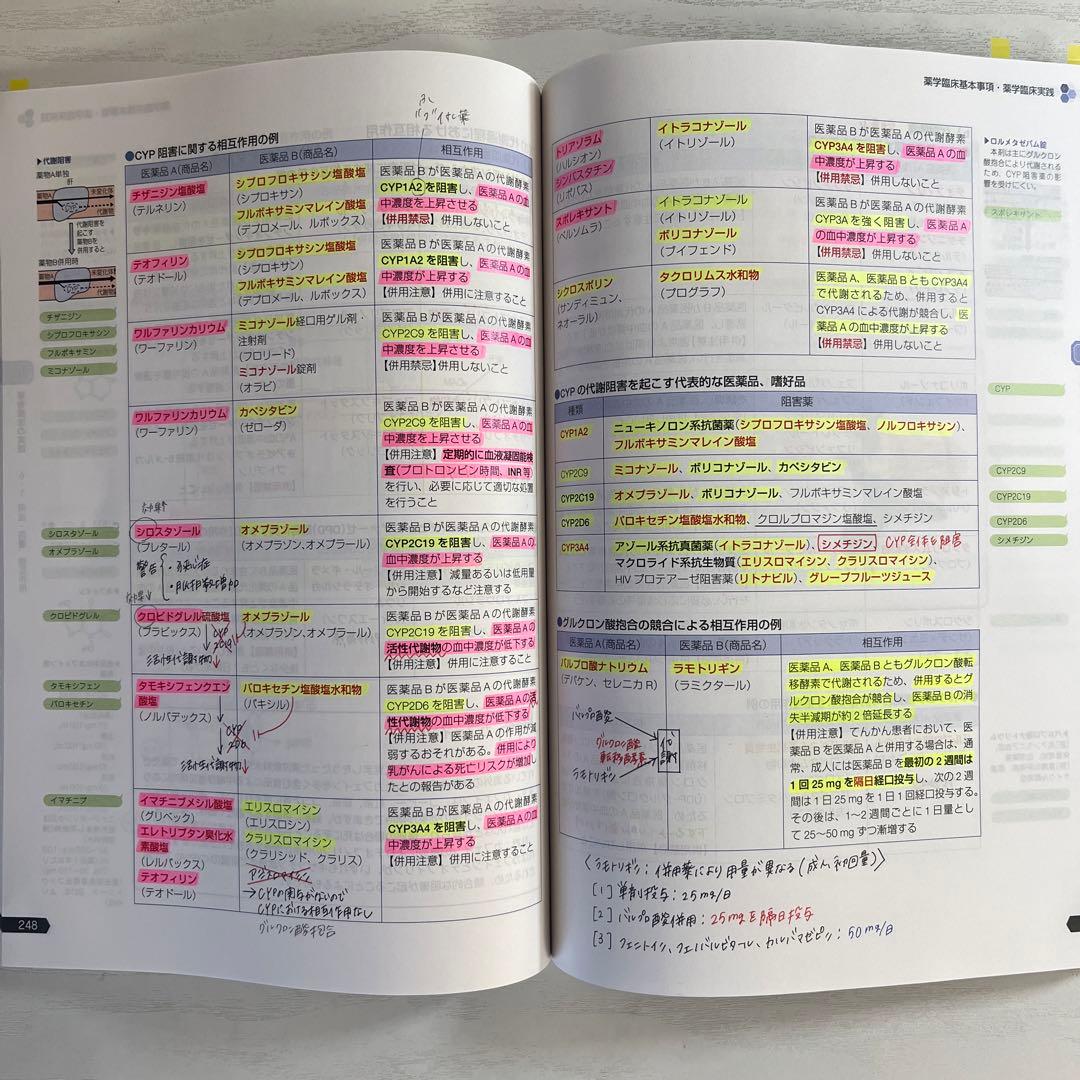 ▶代謝阻害
薬物A単独
肝
未変化体
薬物A
CYP
代謝物
代謝阻害を
起こす
薬物Bを
併用すると
薬物B併用時
未変化体
薬物A
代謝物
チザニジン
シプロフロキサシン
フルボキサミン
ミコナゾール
シロスタゾール
オメプラゾール
クロピドグレル
タモキシフェン
パロキセチン
イマチニブ
248
●CYP阻害に関する相互作用の例
医薬品A(商品名)
医薬品B(商品名)
相互作用
チザニジン塩酸塩
(テルネリン)
シプロフロキサシン塩酸塩
(シプロキサン)
フルボキサミンマレイン酸塩
(デプロメール、ルボックス)
医薬品Bが医薬品Aの代謝酵素
CYP1A2を阻害し、医薬品Aの血
中濃度を上昇させる
【併用禁忌】併用しないこと
テオフィリン
(テオドール)
シプロフロキサシン塩酸塩
(シプロキサン)
フルボキサミンマレイン酸塩
(デプロメール、ルボックス)
医薬品Bが医薬品Aの代謝酵素
CYP1A2を阻害し、医薬品Aの血
中濃度が上昇する
【併用注意】併用に注意すること
ワルファリンカリウム
(ワーファリン)
ミコナゾール経口用ゲル剤・
注射剤
(フロリード)
ミコナゾール錠剤
(オラビ)
医薬品Bが医薬品Aの代謝酵素
CYP2C9を阻害し、医薬品Aの血
中濃度を上昇させる
【併用禁忌】併用しないこと
ワルファリンカリウム
(ワーファリン)
カペシタビン
(ゼローダ)
医薬品Bが医薬品Aの代謝酵素
CYP2C9を阻害し、医薬品Aの血
中濃度を上昇させる
【併用注意】定期的に血液凝固能検
査(プロトロンビン時間、INR等)
を行い、必要に応じて適切な処置
を行うこと
シロスタゾール
(プレタール)
警告
・うっ血
・脈拍数増加
オメプラゾール
(オメプラゾン、オメプラール)
医薬品Bが医薬品Aの代謝酵素
CYP2C19を阻害し、医薬品Aの
血中濃度が上昇する
【併用注意】減量あるいは低用量
から開始するなど注意する
クロピドグレル硫酸塩
(プラビックス)
CYP
2C19
活性代謝物↓
オメプラゾール
(オメプラゾン、オメプラール)
医薬品Bが医薬品Aの代謝酵素
CYP2C19を阻害し、医薬品Aの
活性代謝物の血中濃度が低下する
【併用注意】併用しないこと
タモキシフェンクエン
酸塩
(ノルバデックス)
CYP
2D6
活性代謝物↓
パロキセチン塩酸塩水和物
(パキシル)
医薬品Bが医薬品Aの代謝酵素
CYP2D6を阻害し、医薬品Aの活
性代謝物の血中濃度が低下する
【併用注意】医薬品Aの作用が減
弱するおそれがある。併用により
乳がんによる死亡リスクが増加し
たとの報告がある
イマチニブメシル酸塩
(グリベック)
エレトリプタン臭化水
素酸塩
(レルパックス)
テオフィリン
(テオドール)
エリスロマイシン
(エリスロシン)
クラリスロマイシン
(クラリシッド、クラリス)
アジスロマイシン
→CYPの関与がないので
CYPにおける相互作用なし
グルクロン酸抱合
医薬品Bが医薬品Aの代謝酵素
CYP3A4を阻害し、医薬品Aの血
中濃度が上昇する
【併用注意】併用に注意すること
薬学臨床基本事項・薬学臨床実践
トリアゾラム
(ハルシオン)
シンバスタチン
(リポバス)
イトラコナゾール
(イトリゾール)
医薬品Bが医薬品Aの代謝酵素
CYP3A4を阻害し、医薬品Aの血
中濃度が上昇する
【併用禁忌】併用しないこと
スボレキサント
(ベルソムラ)
イトラコナゾール
(イトリゾール)
ボリコナゾール
(ブイフェンド)
医薬品Bが医薬品Aの代謝酵素
CYP3Aを強く阻害し、医薬品A
の血中濃度が上昇する
【併用禁忌】併用しないこと
シクロスポリン
(サンディミュン、
ネオーラル)
タクロリムス水和物
(プログラフ)
医薬品A、医薬品BともCYP3A4
で代謝されるため、併用すると
CYP3A4による代謝が競合し、医
薬品Aの血中濃度が上昇する
【併用禁忌】併用しないこと
●CYPの代謝阻害を起こす代表的な医薬品、嗜好品
種類
阻害薬
CYP1A2
ニューキノロン系抗菌薬(シプロフロキサシン塩酸塩、ノルフロキサシン)、
フルボキサミンマレイン酸塩
CYP2C9
ミコナゾール、ボリコナゾール、カペシタビン
CYP2C19
オメプラゾール、ボリコナゾール、フルボキサミンマレイン酸塩
CYP2D6
パロキセチン塩酸塩水和物、クロルプロマジン塩酸塩、シメチジン
CYP3A4
アゾール系抗真菌薬(イトラコナゾール)、シメチジン、CYP全体を阻害
マクロライド系抗生物質(エリスロマイシン、クラリスロマイシン)、
HIVプロテアーゼ阻害薬(リトナビル)、グレープフルーツジュース
●グルクロン酸抱合の競合による相互作用の例
医薬品A(商品名)
医薬品B(商品名)
相互作用
バルプロ酸ナトリウム
(デパケン、セレニカR)
ラモトリギン
(ラミクタール)
バルプロ酸
グルクロン酸
転移酵素
代謝
ラモトリギン
医薬品A、医薬品Bともグルクロン酸転
移酵素で代謝されるため、併用するとグ
ルクロン酸抱合が競合し、医薬品Bの消
失半減期が約2倍延長する
【併用注意】てんかん患者において、医
薬品Bを医薬品Aと併用する場合は、通
常、成人には医薬品Bを最初の2週間は
1回25mgを隔日経口投与し、次の2週
間は1日25mgを1日1回経口投与する。
その後は、1~2週間ごとに1日量とし
て25~50mgずつ漸増する
〈ラモトリギン:併用薬により用量が異なる(成人、初回量)〉
[1] 単剤投与:25mg/日
[2] バルプロ酸併用:25mgを隔日投与
[3] フェニトイン、フェノバルビタール、カルバマゼピン:50mg/日
▶ロルメタゼパム錠
本剤は主にグルクロン
酸抱合により代謝される
ため、CYP阻害薬の影
響を受けにくい。
スボレキサント
CYP
CYP2C9
CYP2C19
CYP2D6
シメチジン